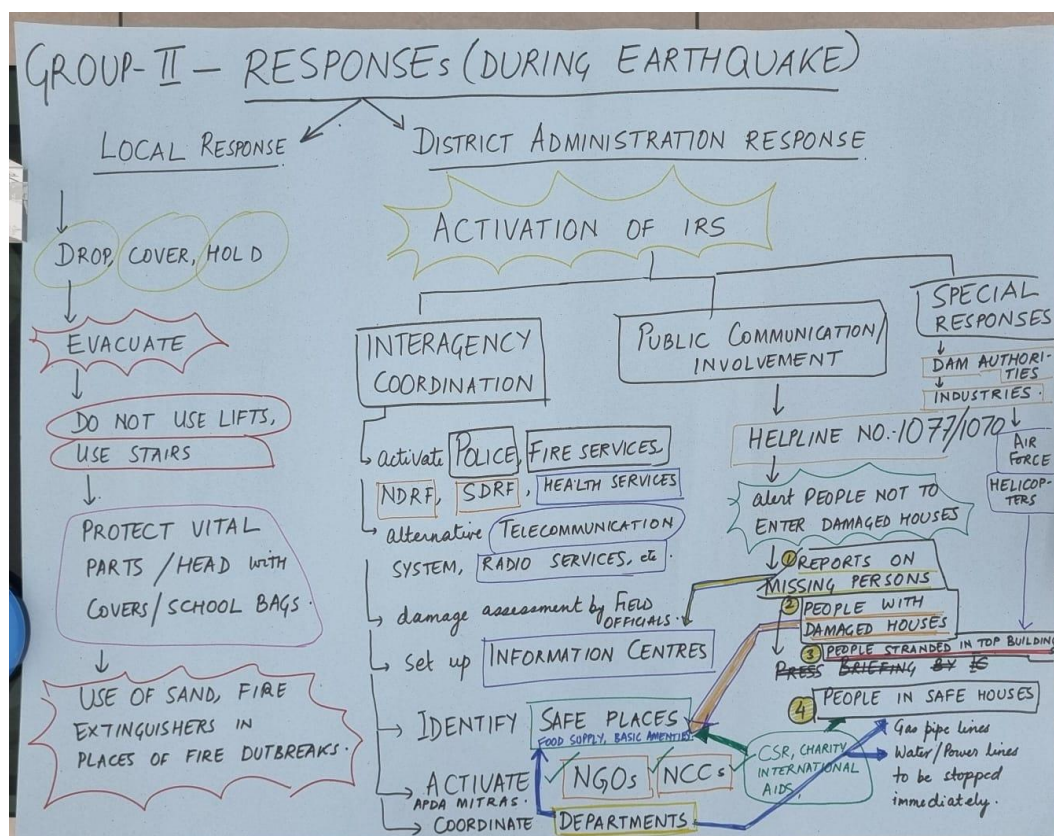 GROUP-II – RESPONSEs (DURING EARTHQUAKE)
LOCAL RESPONSE
DROP, COVER, HOLD
EVACUATE
DO NOT USE LIFTS,
USE STAIRS
PROTECT VITAL
PARTS / HEAD with
COVERS / SCHOOL BAGS.
USE OF SAND, FIRE
EXTINGUISHERS IN
PLACES OF FIRE OUTBREAKS.
DISTRICT ADMINISTRATION RESPONSE
ACTIVATION OF IRS
INTERAGENCY
COORDINATION
activate POLICE, FIRE SERVICES,
NDRF, SDRF, HEALTH SERVICES
alternative TELECOMMUNICATION
SYSTEM, RADIO SERVICES, etc.
damage assessment by FIELD
OFFICIALS.
Set up INFORMATION CENTRES
IDENTIFY SAFE PLACES
FOOD SUPPLY, BASIC AMENTIES.
ACTIVATE NGOs NCCs
APDA MITRAS.
COORDINATE DEPARTMENTS
PUBLIC COMMUNICATION/
INVOLVEMENT
HELPLINE NO.-1077/1070
alert PEOPLE NOT TO
ENTER DAMAGED HOUSES
① REPORTS ON
MISSING PERSONS
② PEOPLE WITH
DAMAGED HOUSES
③ PEOPLE STRANDED IN TOP BUILDING
PRESS BRIEFING BY IC
④ PEOPLE IN SAFE HOUSES
CSR, CHARITY
INTERNATIONAL
AIDS,
Gas pipe lines
Water/Power lines
to be stopped
immediately.
SPECIAL
RESPONSES
DAM AUTHORI-
TIES
INDUSTRIES.
AIR
FORCE
HELICOP-
TERS